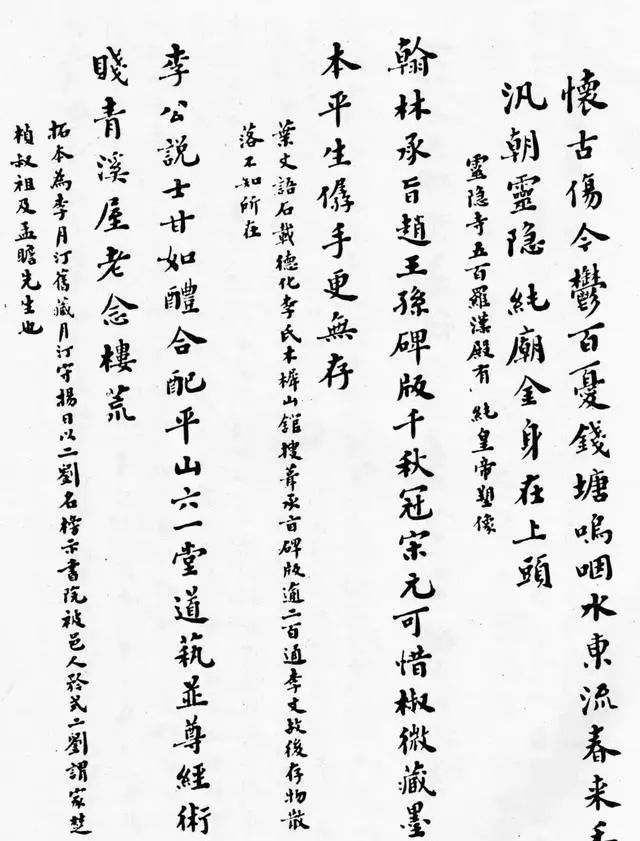 懷古傷今鬱百憂錢塘嗚咽水東流春来
汎朝靈隐純廟金身在上頭
靈隐寺五百羅漢殿有 純皇帝塑像
翰林承旨趙王孫碑版千秋冠宋元可惜椒微藏墨
本平生儔手更無存
葉丈語石載德化李氏木樨山館搜羅承旨碑版逾二百通李丈歿後存物散
落不知所在
李公說士甘如醴合配平山六一堂道藝並尊經術
賤青溪屋老念樓荒
拓本為李月汀舊藏月汀守揚日以二劉名榜示書院被邑人矜式二劉謂家楚
楨叔祖及孟瞻先生也